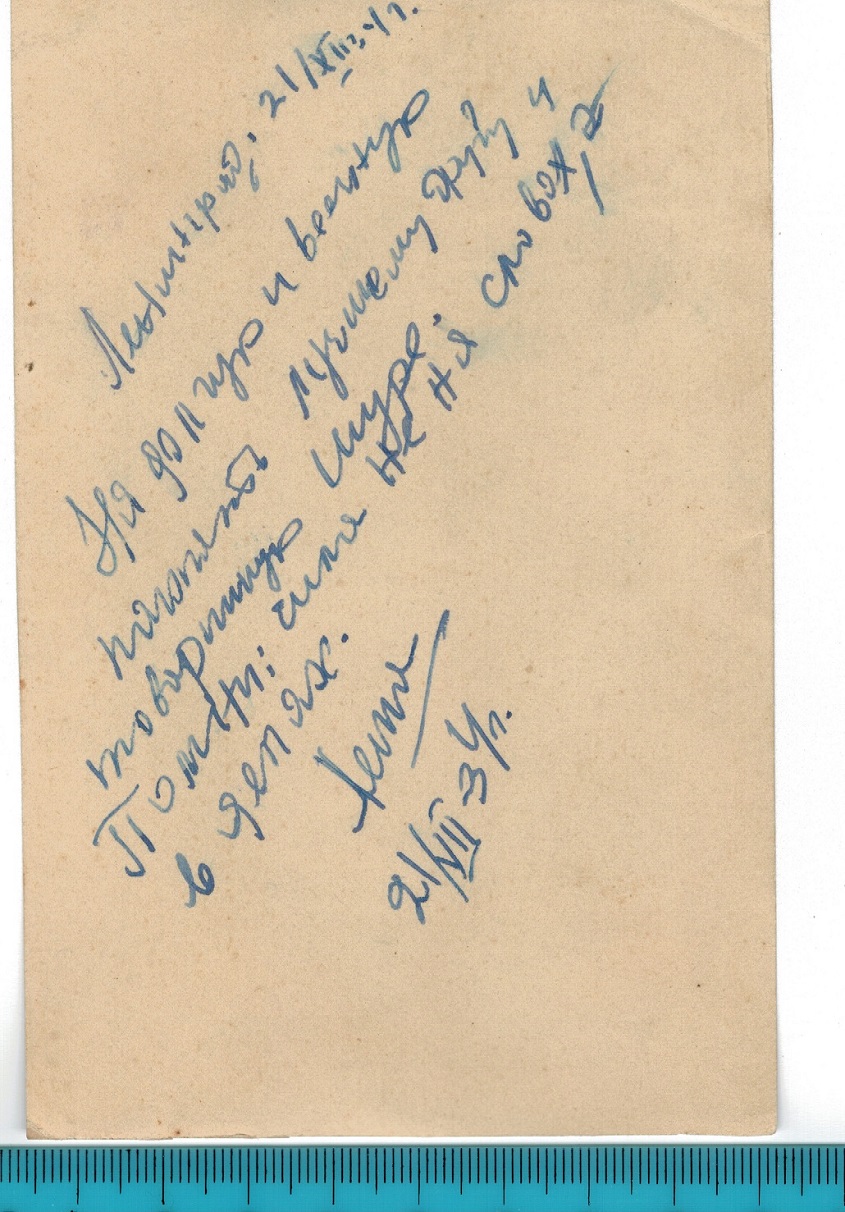 Ленинград, 21/VIII-34г.
На долгую и вечную
память лучшему другу и
товарищу Шуре.
Помни: сила не на словах, а
в делах.
21/VIII-34г.